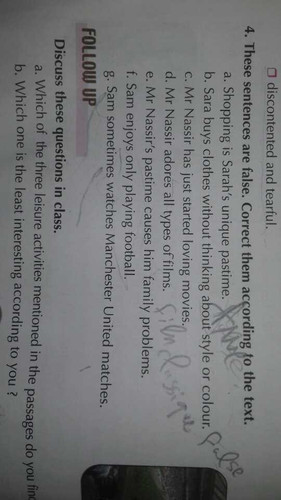 discontented and tearful.
4. These sentences are false. Correct them according to the text.
a. Shopping is Sarah's unique pastime.
b. Sara buys clothes without thinking about style or colour. false
c. Mr Nassir has just started loving movies.
d. Mr Nassir adores all types of films.
e. Mr Nassir's pastime causes him family problems.
f. Sam enjoys only playing football.
g. Sam sometimes watches Manchester United matches.
FOLLOW UP
Discuss these questions in class.
a. Which of the three leisure activities mentioned in the passages do you find
b. Which one is the least interesting according to you ?